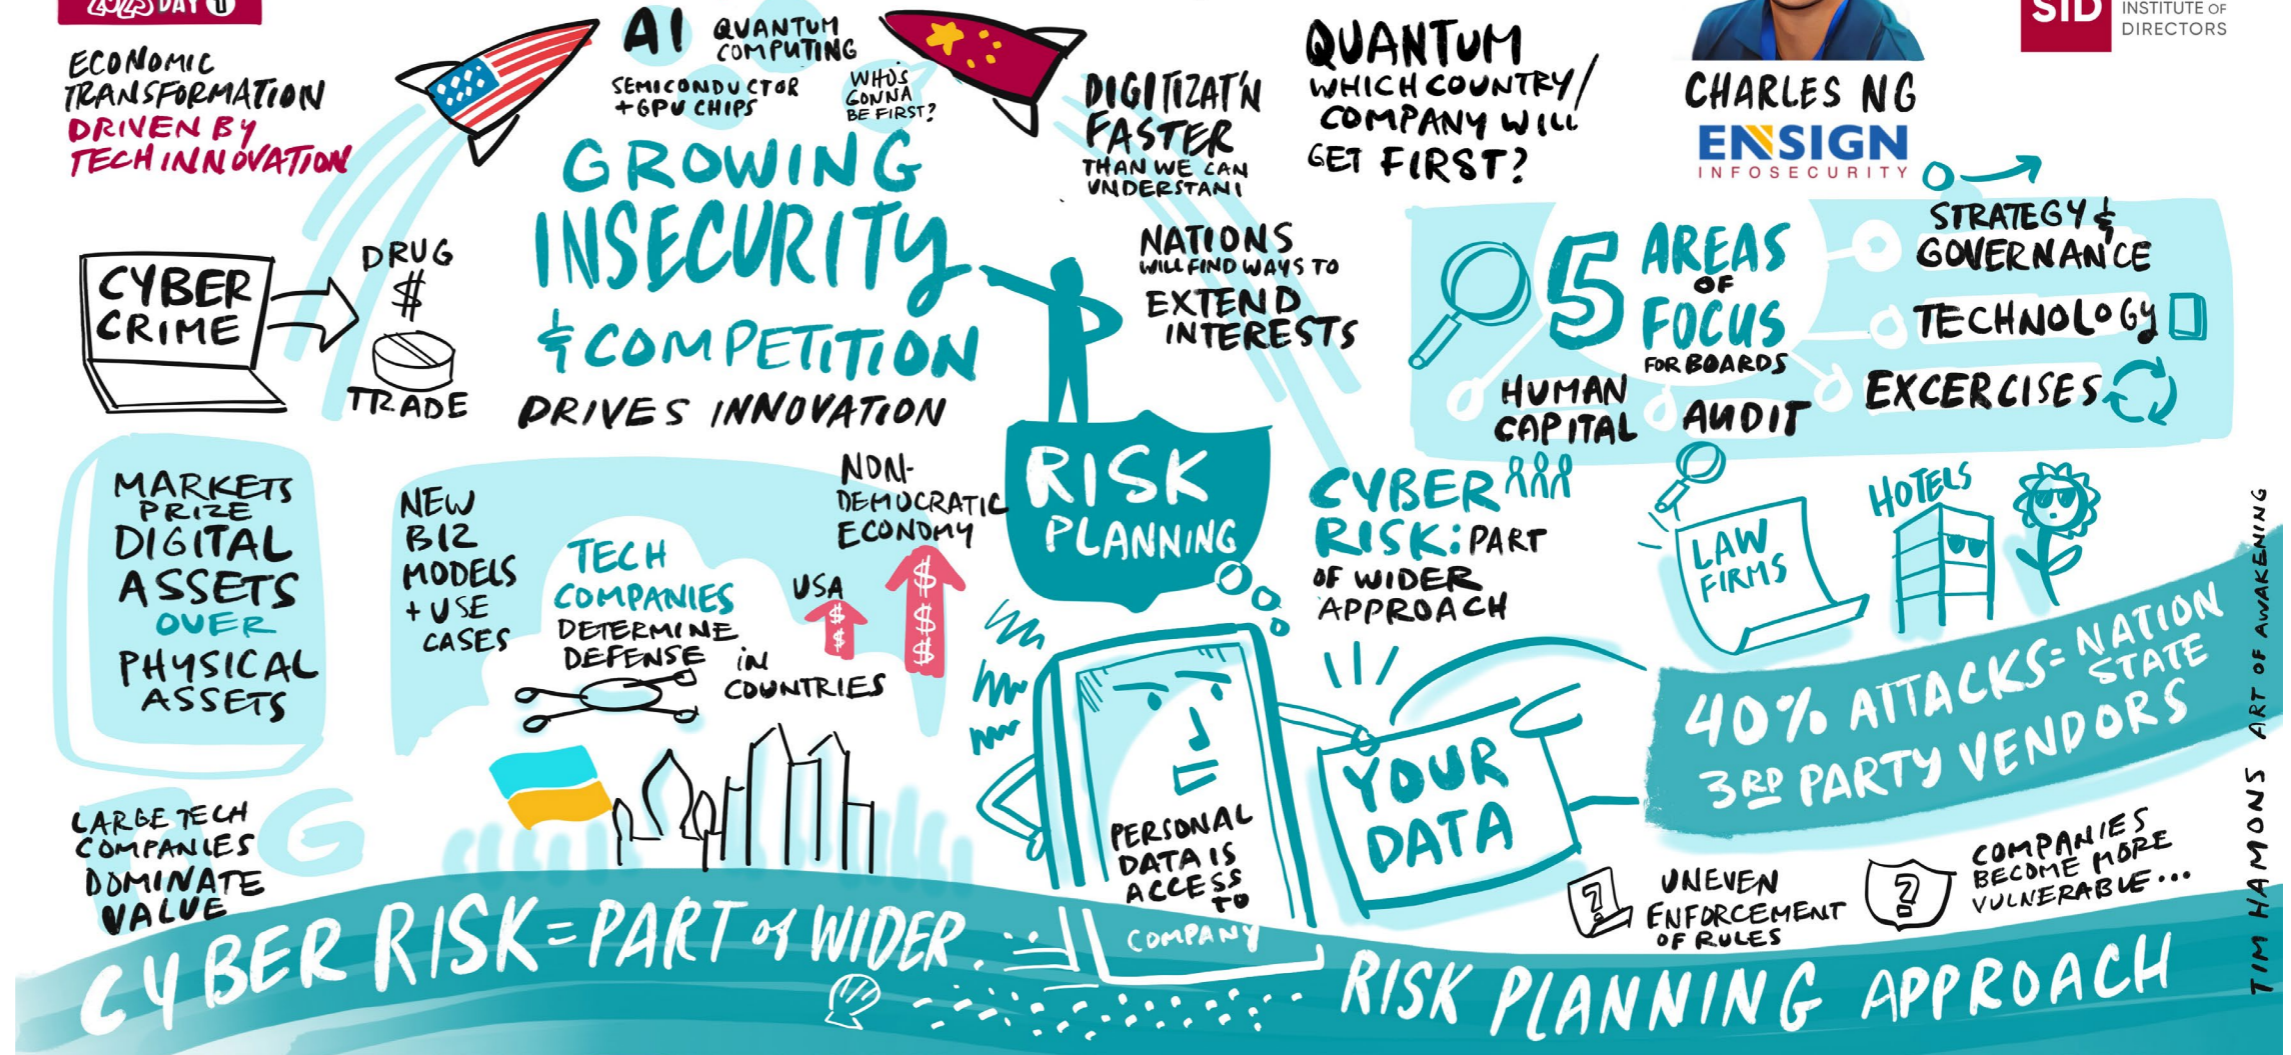 2023 DAY 1
ECONOMIC
TRANSFORMATION
DRIVEN BY
TECH INNOVATION
AI
QUANTUM
COMPUTING
SEMICONDUCTOR
+ GPU CHIPS
WHO'S
GONNA
BE FIRST?
GROWING
INSECURITY
& COMPETITION
DRIVES INNOVATION
DIGITIZAT'N
FASTER
THAN WE CAN
UNDERSTAN
QUANTUM
WHICH COUNTRY/
COMPANY WILL
GET FIRST?
CHARLES NG
ENSIGN
INFOSECURITY
SID
INSTITUTE OF
DIRECTORS
CYBER
CRIME
DRUG
$
TRADE
NATIONS
WILL FIND WAYS TO
EXTEND
INTERESTS
5 AREAS
OF
FOCUS
FOR BOARDS
STRATEGY &
GOVERNANCE
TECHNOLOGY
EXCERCISES
AUDIT
HUMAN
CAPITAL
MARKETS
PRIZE
DIGITAL
ASSETS
OVER
PHYSICAL
ASSETS
NEW
BIZ
MODELS
+ USE
CASES
TECH
COMPANIES
DETERMINE
DEFENSE
IN
COUNTRIES
USA
$
$
NON-
DEMOCRATIC
ECONOMY
$
$
$
RISK
PLANNING
CYBER
RISK: PART
OF WIDER
APPROACH
LAW
FIRMS
HOTELS
40% ATTACKS = NATION
STATE
3RD PARTY VENDORS
LARGE TECH
COMPANIES
DOMINATE
VALUE
G
PERSONAL
DATA IS
ACCESS
TO
COMPANY
YOUR
DATA
?
UNEVEN
ENFORCEMENT
OF RULES
?
COMPANIES
BECOME MORE
VULNERABLE...
CYBER RISK = PART of WIDER
RISK PLANNING APPROACH
TIM HAMONS ART OF AWAKENING